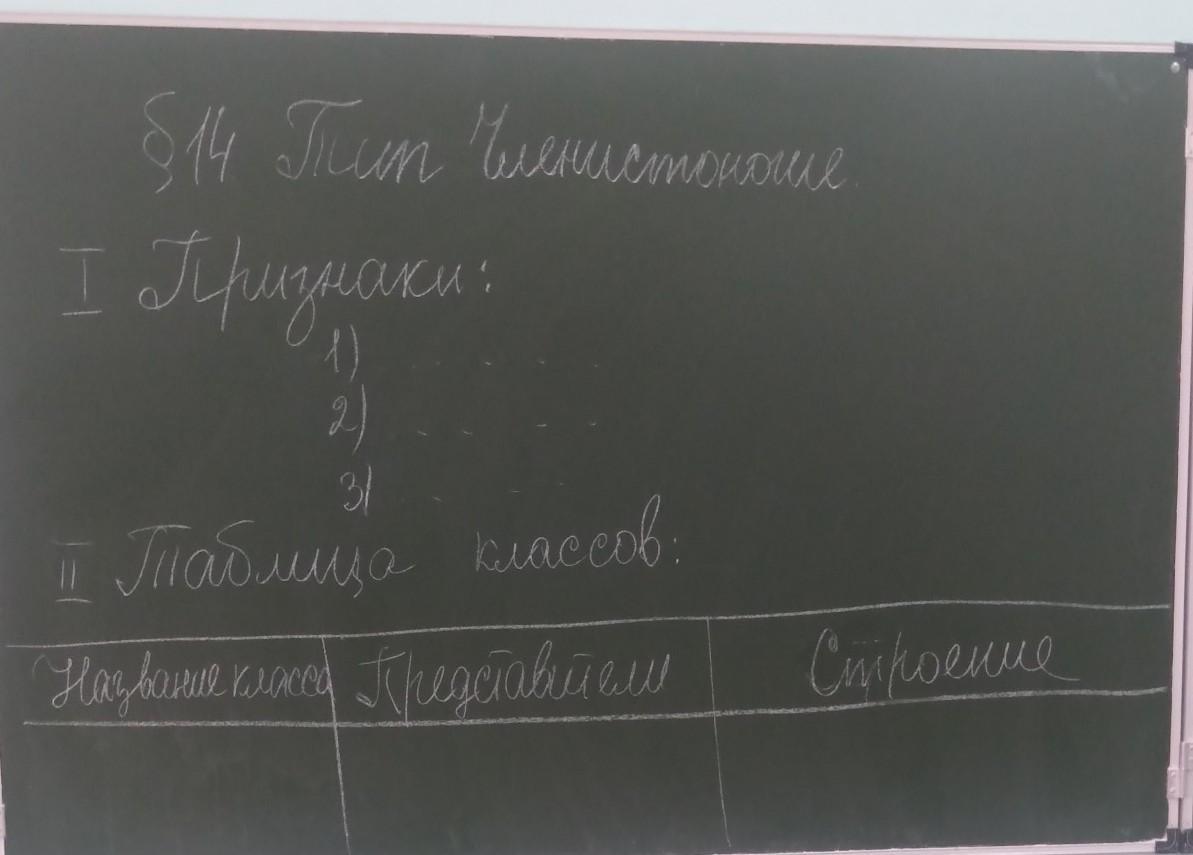 §14 Тип Членистоногие.
I Признаки:
1) - - - -
2) - - - -
3) - - -
II Таблица классов:
Название класса Представители Строение